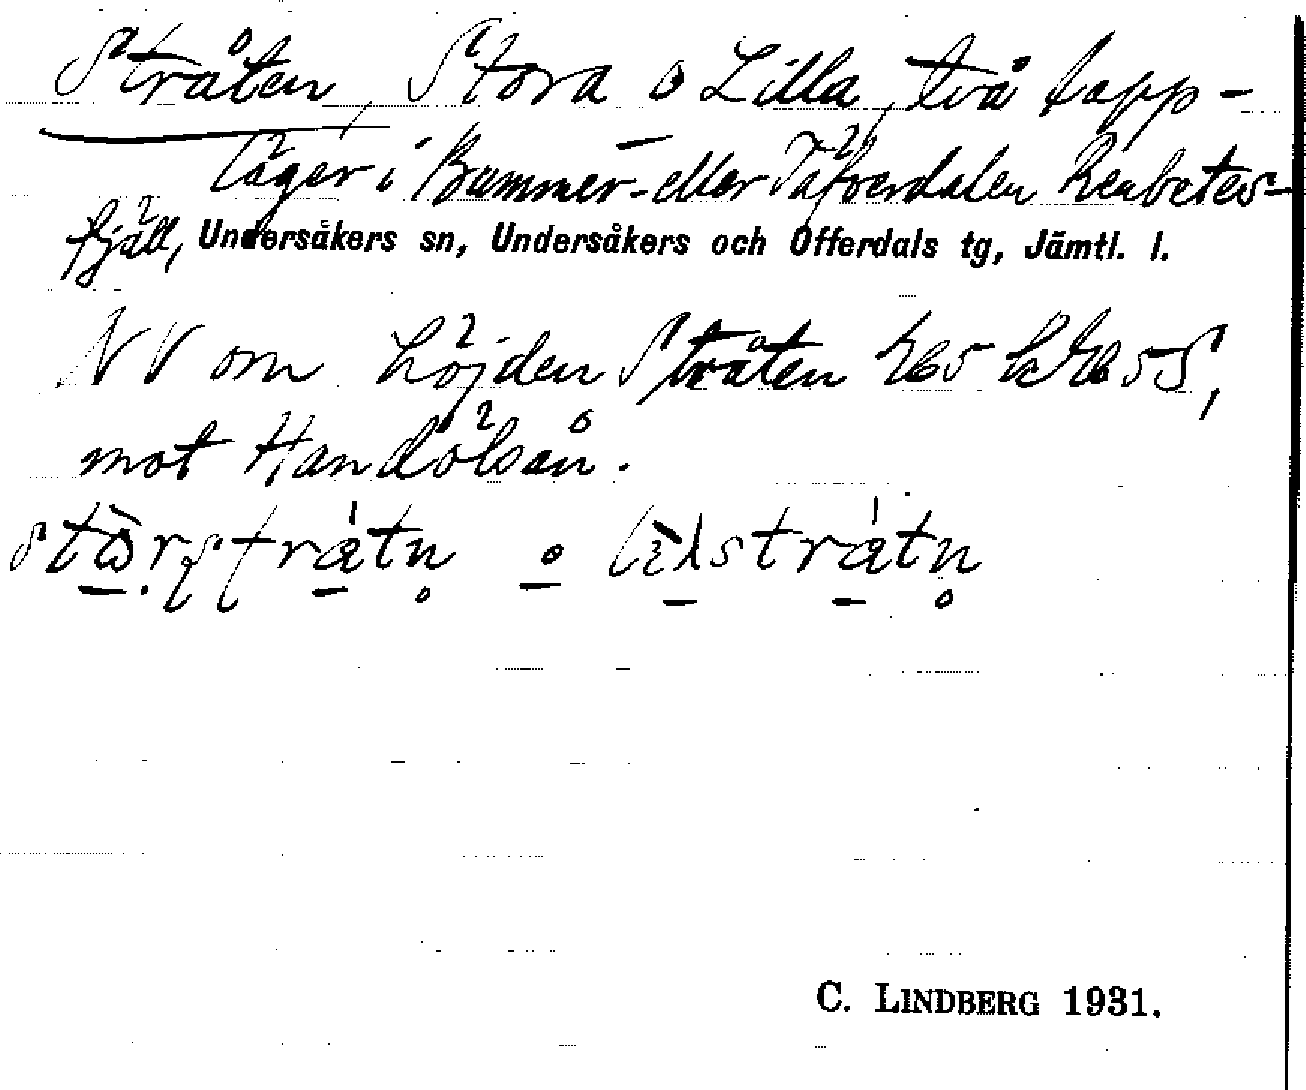 Stråten, Stora o Lilla, två lapp-
läger i Bummer- eller Täfverdalen Renbetes-
fjäll, Undersåkers sn, Undersåkers och Offerdals tg, Jämtl. l.
NV om höjden Stråten
mot Handölsån.
C. LINDBERG 1931.